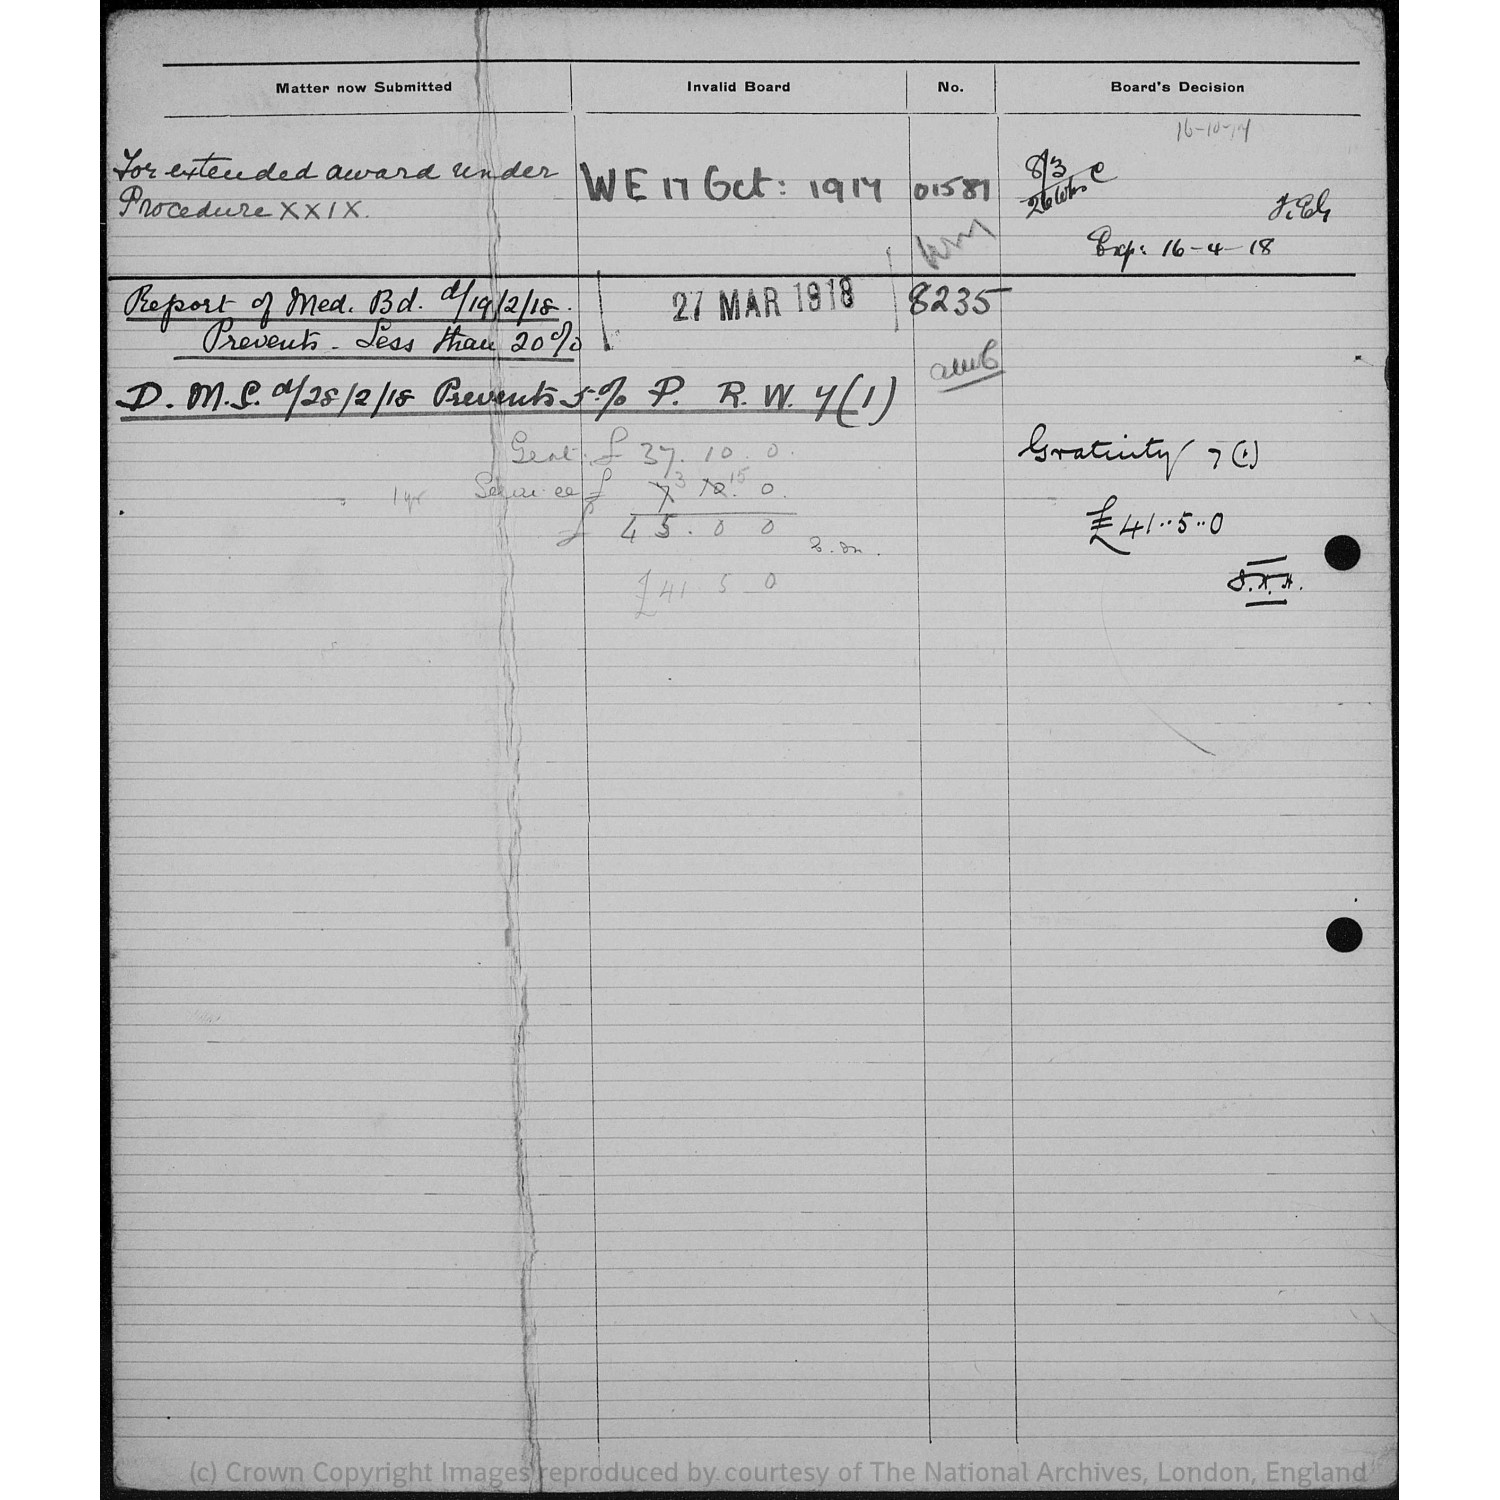 Matter now Submitted Invalid Board No. Board's Decision
16-10-17
For extended award under
Procedure XXIX.
WE 17 Oct: 1917 01587
8/3 c
26 Wks
Exp: 16-4-18
Report of Med. Bd. d/19/2/18.
Prevents - Less than 20%
27 MAR 1918 8235
D. M. S. d/28/2/18 Prevents 5% P. R. W. 7(1)
Grat. £ 37. 10. 0.
1 yr Service £ 7 3 10 15 0.
£ 45. 0 0
£41 5 0
Gratuity 7(1)
£41..5..0
(c) Crown Copyright Images reproduced by courtesy of The National Archives, London, England